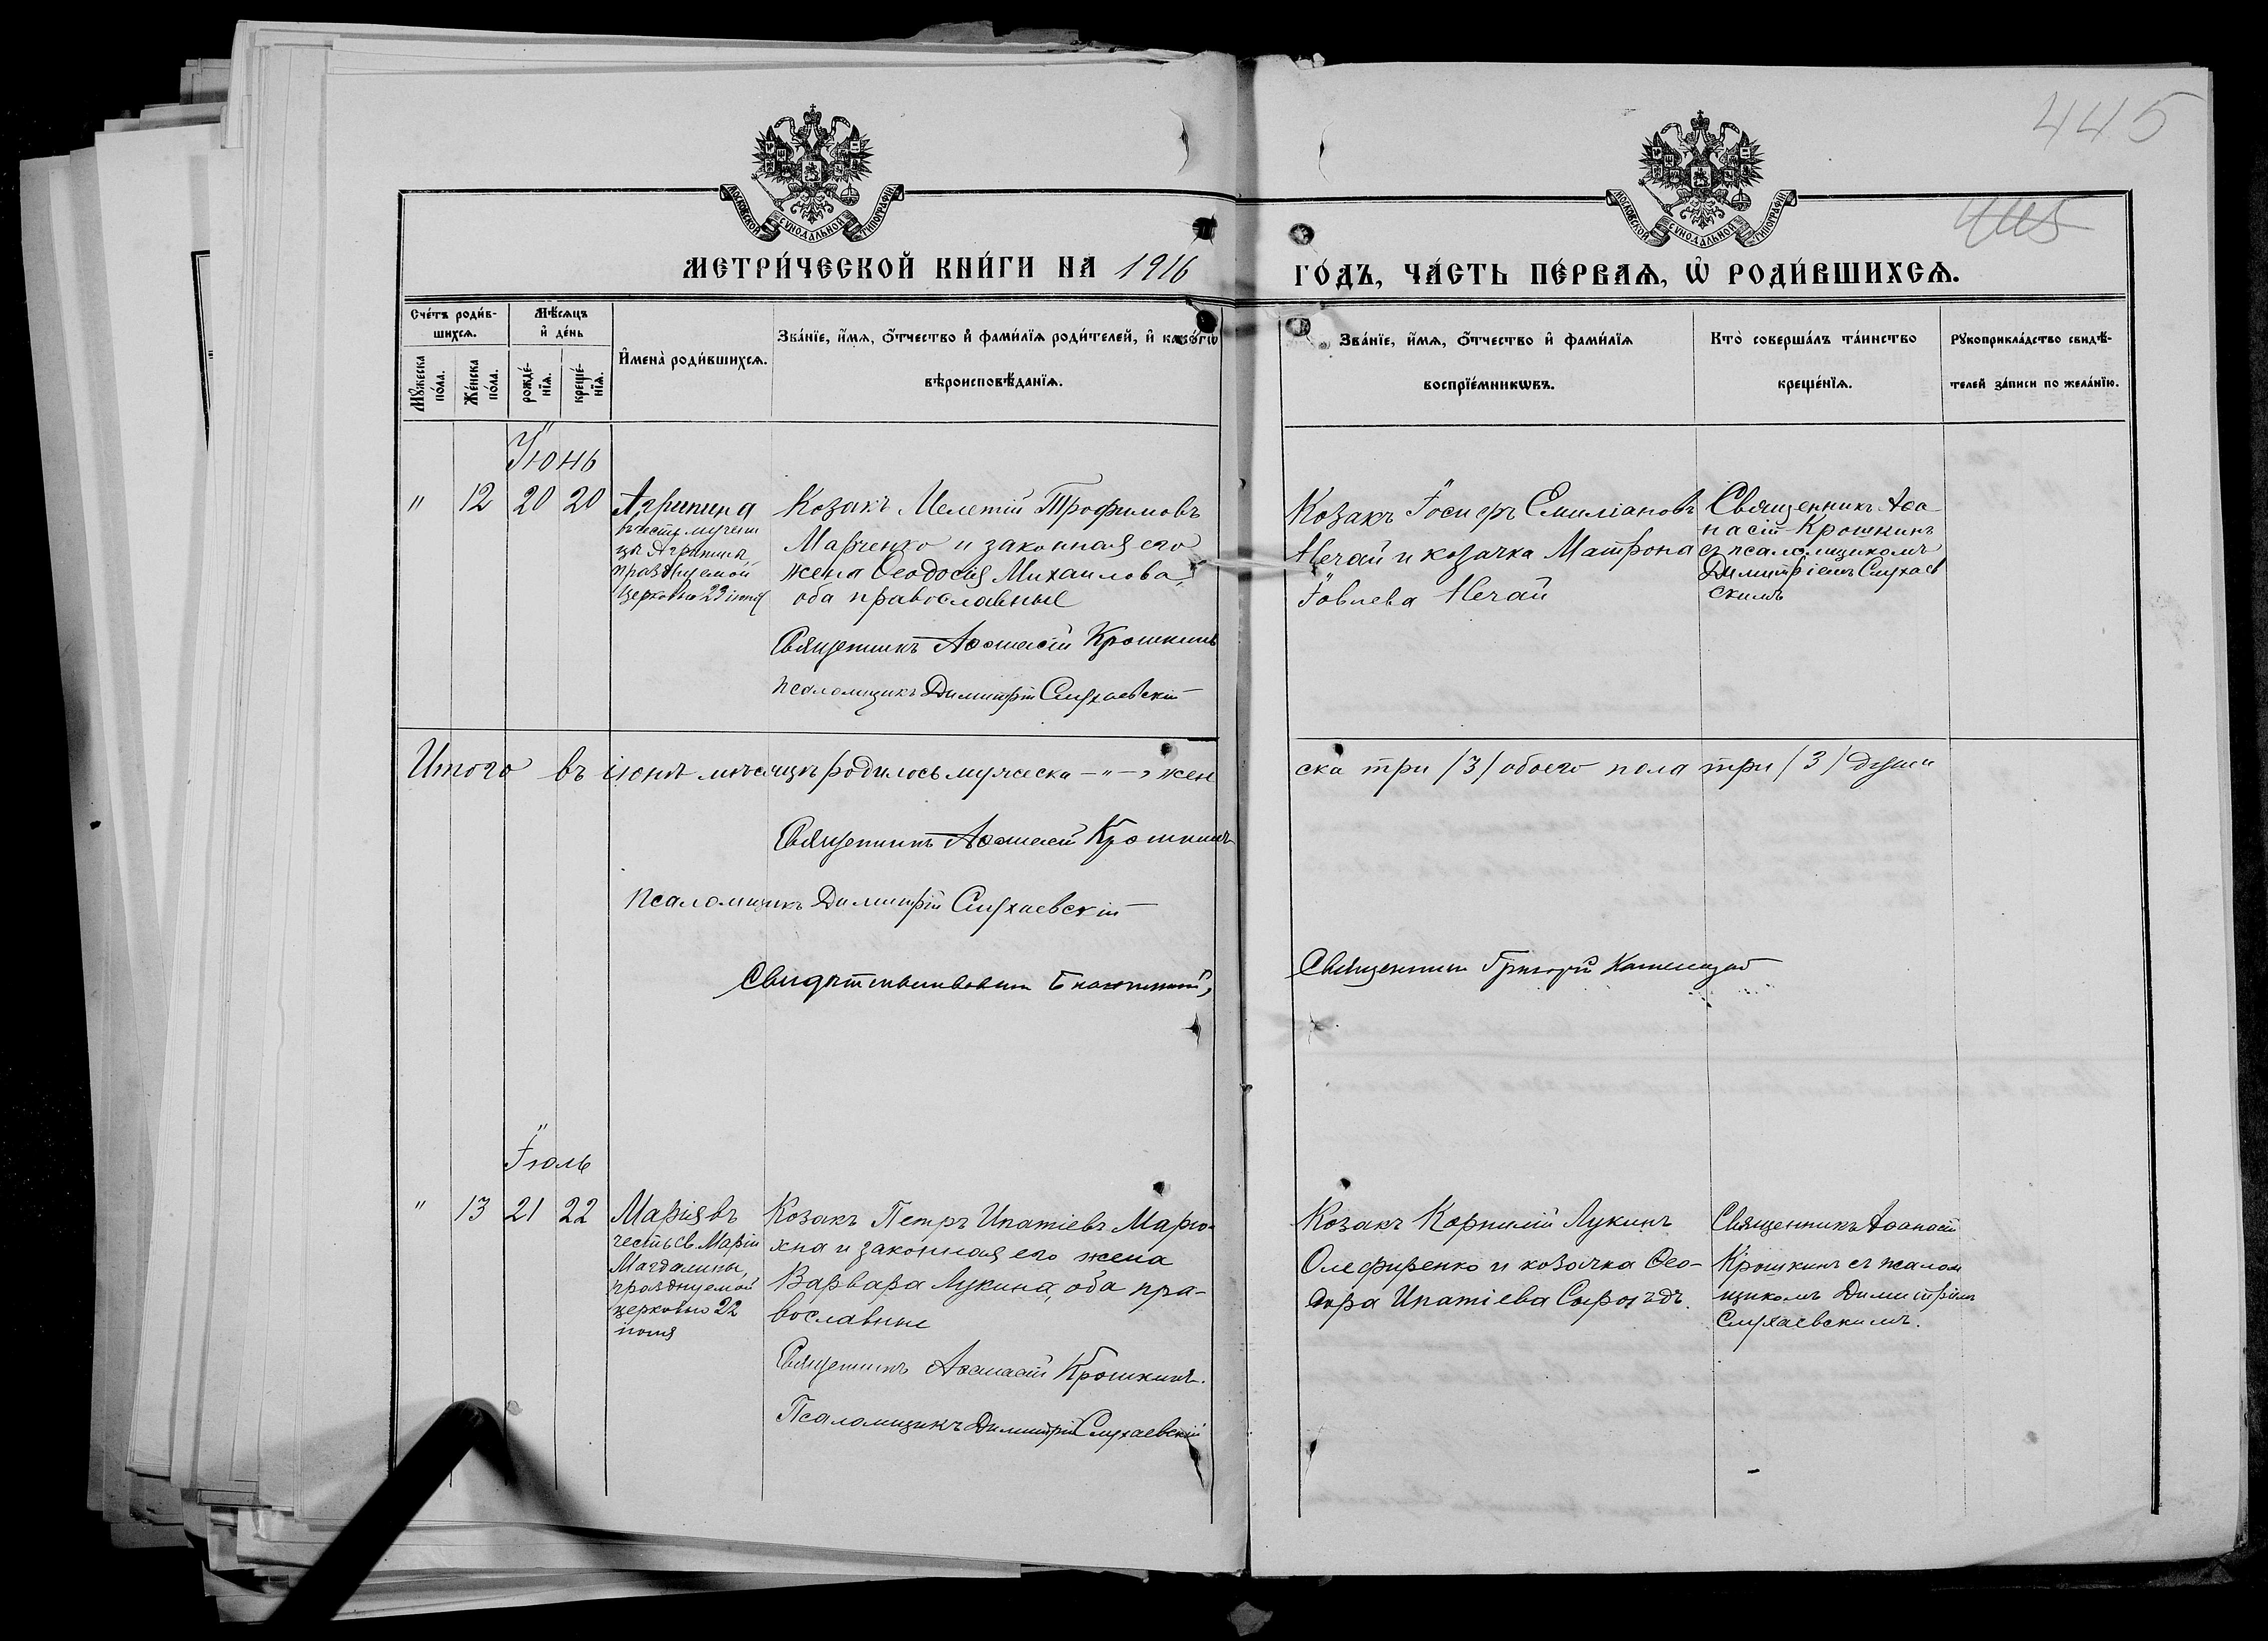 445
445
МОСКОВСКОЙ СѴНОДАЛЬНОЙ ТИПОГРАФІИ
МОСКОВСКОЙ СѴНОДАЛЬНОЙ ТИПОГРАФІИ
МЕТРИ́ЧЕСКОЙ КНИ́ГИ НА 1916
ГО́ДЪ, ЧА́СТЬ ПЕ́РВАѦ, Ѡ҆ РОДИ́ВШИХСѦ.
Сче́тъ роди́в-
шихсѧ.
Мꙋ́жеска по́ла.
Же́нска по́ла.
Мѣ́сѧцъ
и҆ де́нь
рожде́-
нїѧ.
креще́-
нїѧ.
И҆мена̀ роди́вшихсѧ.
Зва́нїе, и҆́мѧ, ѻ҆́тчество и҆ фами́лїѧ роди́телей, и҆ како́гѡ
вѣроисповѣ́данїѧ.
Зва́нїе, и҆́мѧ, ѻ҆́тчество и҆ фами́лїѧ
воспрїе́мникѡвъ.
Кто̀ соверша́лъ та́инство
креще́нїѧ.
Рꙋкоприкла́дство свидѣ́-
телей за́писи по жела́нїю.
Іюнь
" 12 20 20
Агрипина
въ честь мучени
цы Агрипины,
празднуемой
Церковью 23 іюня
Козакъ Мелетій Трофимовъ
Марченко и законная его
жена Ѳеодосія Михаилова
оба православные
Священникъ Аѳанасій Крошкинъ
Псаломщикъ Димитрій Слухаевскій
Козакъ Іосифъ Емиліановъ
Нечай и козачка Матрона
Іовлева Нечай
Священникъ Аѳа
насій Крошкинъ
съ псаломщикомъ
Димитріемъ Слухаев
скимъ
Итого въ іюнѣ мѣсяцѣ родилось мужеска - " - , жен
ска три /3/ обоего пола три /3/ души
Священникъ Аѳанасій Крошкинъ
Псаломщикъ Димитрій Слухаевскій
Благочинный,
Священникъ Григорій
Іюль
" 13 21 22
Марія въ
честь св. Маріи
Магдалины,
празднуемой
церковью 22
іюля
Козакъ Петръ Ипатіевъ Марю-
хна и законная его жена
Варвара Лукина, оба пра-
вославные
Священникъ Аѳанасій Крошкинъ.
Псаломщикъ Димитрій Слухаевскій
Козакъ Корнилій Лукинъ
Олефиренко и козачка Ѳео-
дора Ипатіева Сыроѣдъ.
Священникъ Аѳанасій
Крошкинъ съ псалом
щикомъ Димитріемъ
Слухаевскимъ.